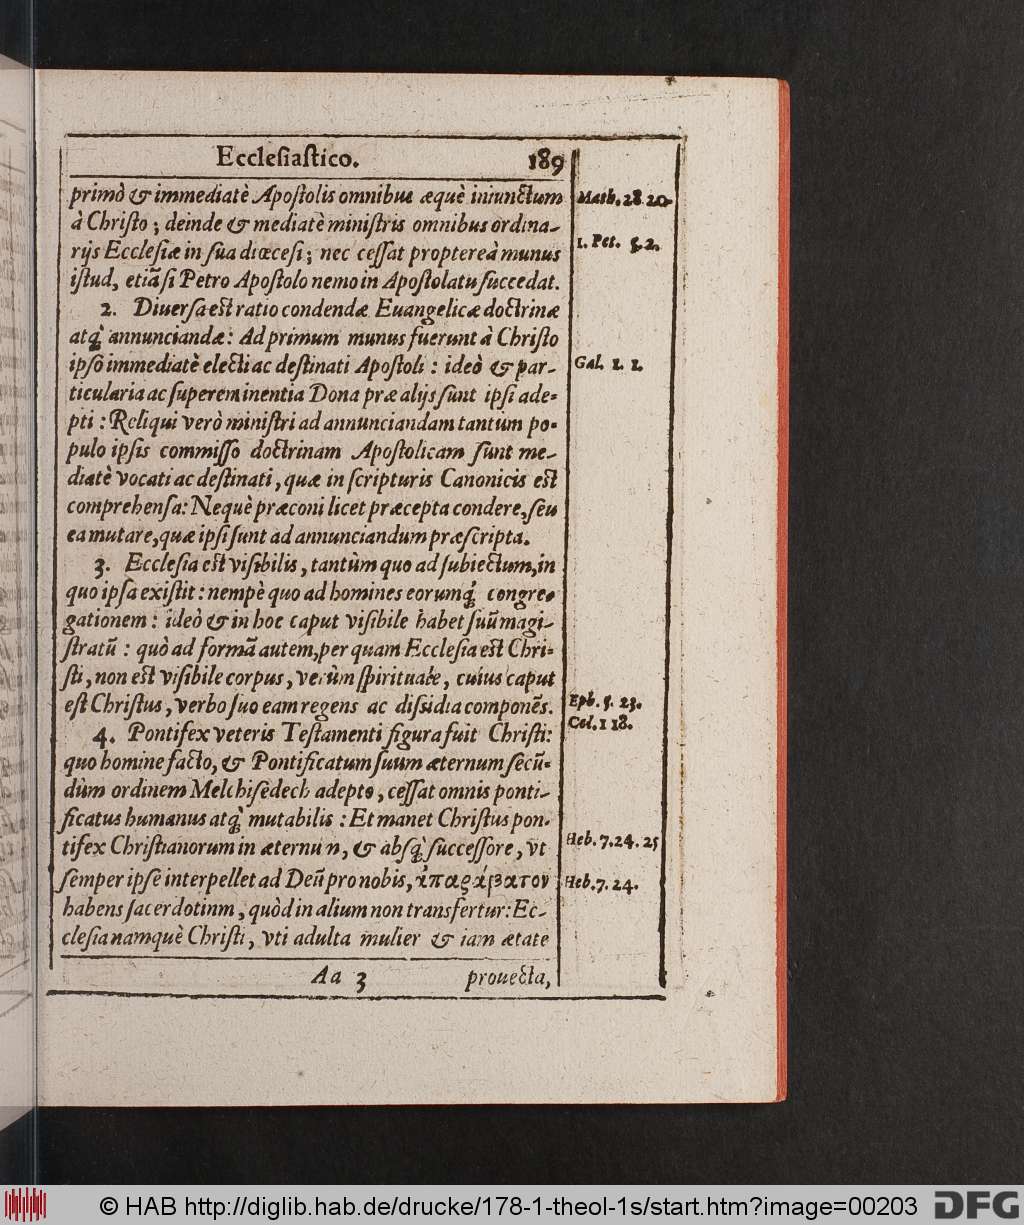 Eccleſiaſtico. 189
primò & immediatè Apoſtolis omnibus æquè iniunctum
à Chriſto ; deinde & mediatè miniſtris omnibus ordina-
rijs Eccleſiæ in ſua diœceſi ; nec ceſſat proptereà munus
iſtud, etiãſi Petro Apoſtolo nemo in Apoſtolatu ſuccedat.
2. Diuerſa eſt ratio condendæ Euangelicæ doctrinæ
atq́; annunciandæ : Ad primum munus fuerunt à Chriſto
ipſo immediatè electi ac deſtinati Apoſtoli : ideò & par-
ticularia ac ſupereminentia Dona præ alijs ſunt ipſi ade-
pti : Reliqui verò miniſtri ad annunciandam tantùm po-
pulo ipſis commiſſo doctrinam Apoſtolicam ſunt me-
diatè vocati ac deſtinati, quæ in ſcripturis Canonicis eſt
comprehenſa: Nequè præconi licet præcepta condere, ſeu
ea mutare, quæ ipſi ſunt ad annunciandum præſcripta.
3. Eccleſia eſt viſibilis, tantùm quo ad ſubiectum, in
quo ipſa exiſtit : nempè quo ad homines eorumq́; congre-
gationem : ideò & in hoc caput viſibile habet ſuũ magi-
ſtratũ : quò ad formã autem, per quam Eccleſia eſt Chri-
ſti, non eſt viſibile corpus, verùm ſpirituale, cuius caput
eſt Chriſtus, verbo ſuo eam regens ac diſsidia componẽs.
4. Pontifex veteris Teſtamenti figura fuit Chriſti:
quo homine facto, & Pontificatum ſuum æternum ſecũ-
dùm ordinem Melchiſedech adepto, ceſſat omnis ponti-
ficatus humanus atq́; mutabilis : Et manet Chriſtus pon-
tifex Chriſtianorum in æternum, & abſq́; ſucceſſore, vt
ſemper ipſe interpellet ad Deũ pro nobis, ἀπαράβατον
habens ſacerdotium, quòd in alium non transfertur: Ec-
cleſia namquè Chriſti, vti adulta mulier & iam ætate
Aa 3 prouecta,
Math. 28. 20.
1. Pet. 5. 2.
Gal. 1. 1.
Eph. 5. 23.
Col. 1 18.
Heb. 7. 24. 25
Heb. 7. 24.
© HAB http://diglib.hab.de/drucke/178-1-theol-1s/start.htm?image=00203 DFG